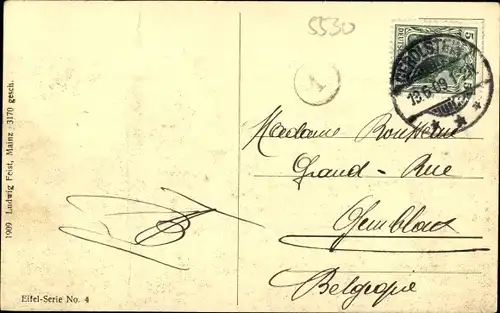 5530
5
DEUTSCHES
GEROLSTEIN
13.6.09
1
Madame
Grand - Rue
Gembloux
Belgique
1909 Ludwig Feist, Mainz 3170 gesch.
Eifel-Serie No. 4